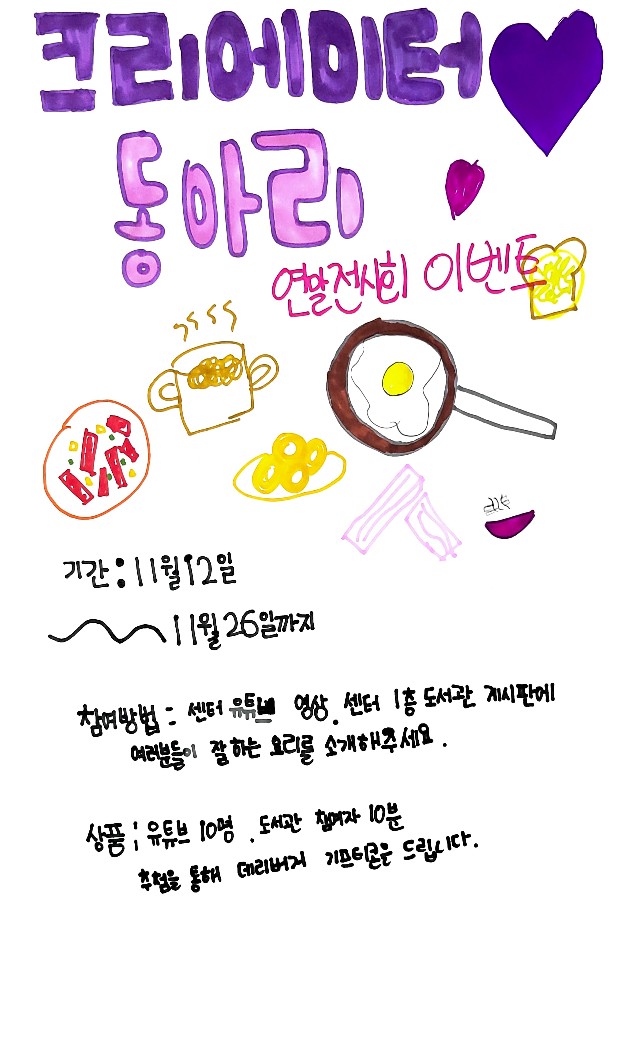 크리에이터
동아리
연말전시회 이벤트
기간 : 11월12일
~ 11월26일까지
참여방법 : 센터 유튜브 영상, 센터 1층 도서관 게시판에
여러분들이 잘하는 요리를 소개해주세요.
상품 : 유튜브 10명, 도서관 참여자 10분
추첨을 통해 데리버거 기프티콘을 드립니다.